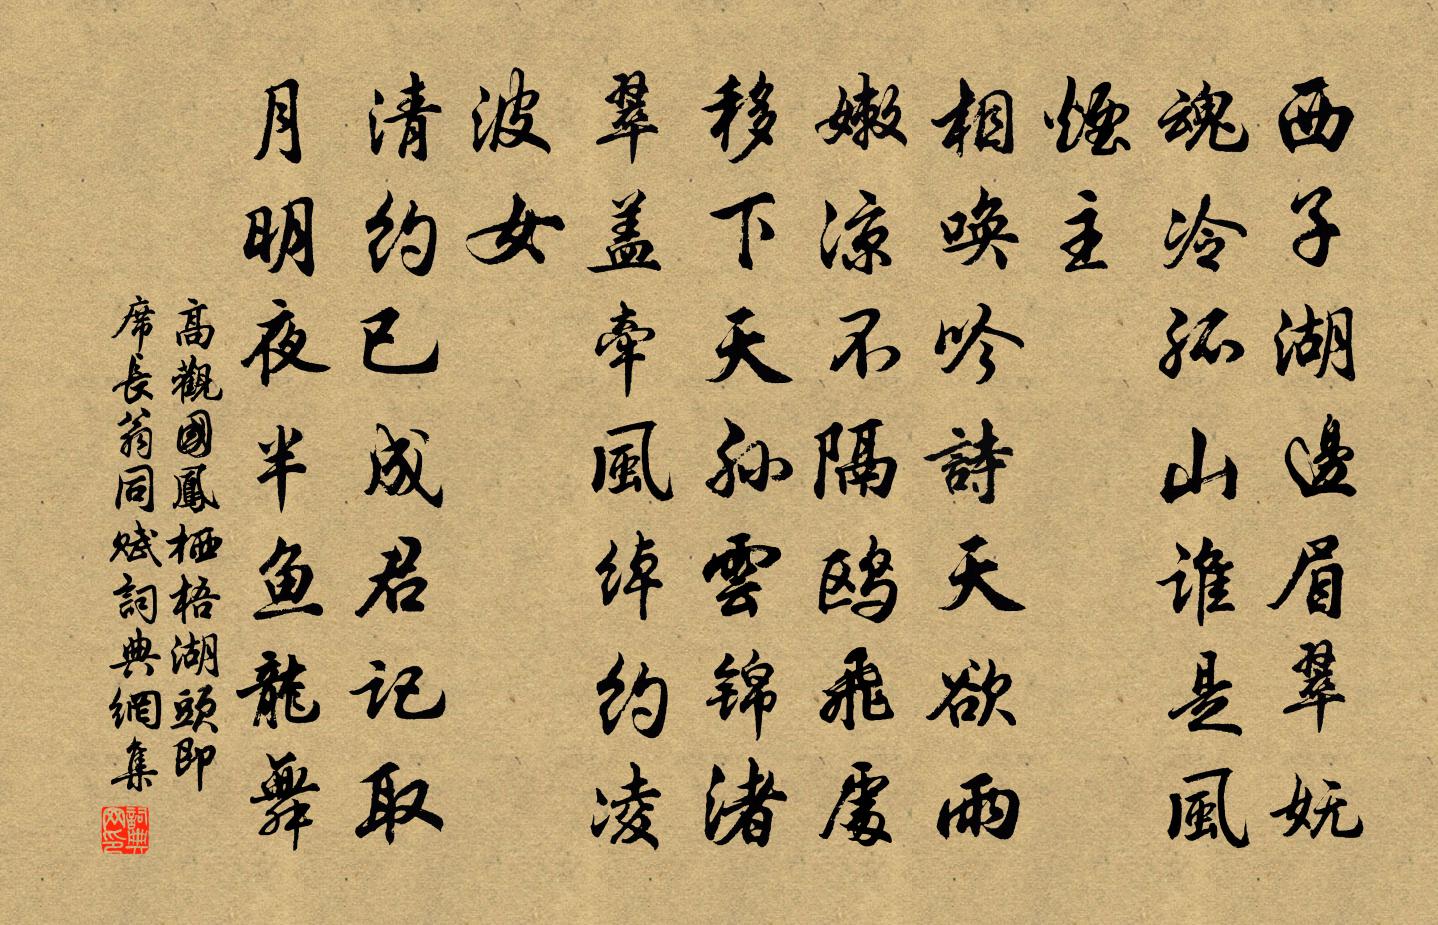 西子湖邊眉翠妩
魂冷孤山谁是風
煙主
相唤吟詩天欲雨
嫩凉不隔鸥飛處
移下天孙雲锦渚
翠盖牵風绰约凌
波女
清约已成君记取
月明夜半鱼龍舞
高觀國鳳栖梧湖頭即
席長翁同赋詞典網集
詞典網印